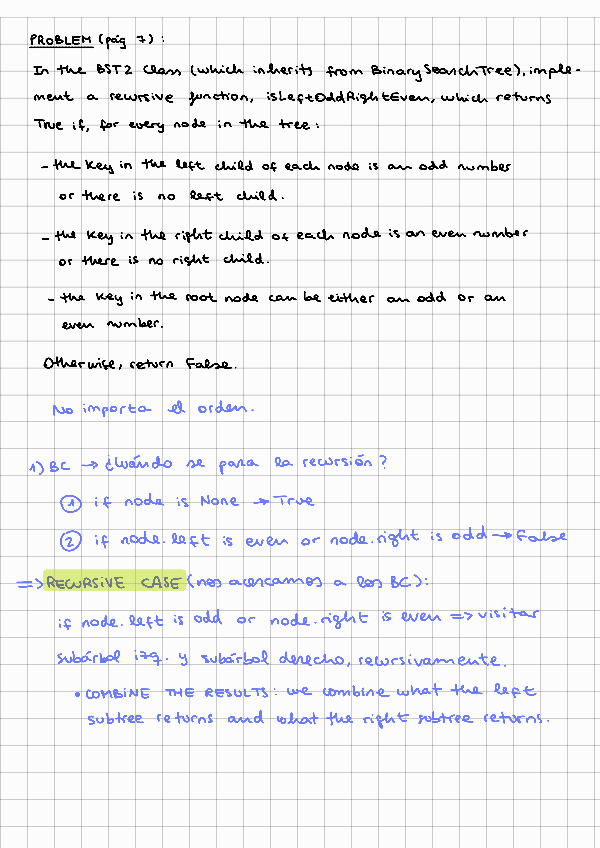 PROBLEM (pág 7):
In the BST2 class (which inherits from BinarySearchTree), imple-
ment a recursive function, isLeftOddRightEven, which returns
True if, for every node in the tree:
- the key in the left child of each node is an odd number
or there is no left child.
- the key in the right child of each node is an even number
or there is no right child.
- the key in the root node can be either an odd or an
even number.
Otherwise, return False.
No importa el orden.
1) BC → ¿Cuándo se para la recursión?
① if node is None → True
② if node.left is even or node.right is odd → False
=> RECURSIVE CASE (nos acercamos a los BC):
if node.left is odd or node.right is even => visitar
subárbol izq. y subárbol derecho, recursivamente.
• COMBINE THE RESULTS: we combine what the left
subtree returns and what the right subtree returns.